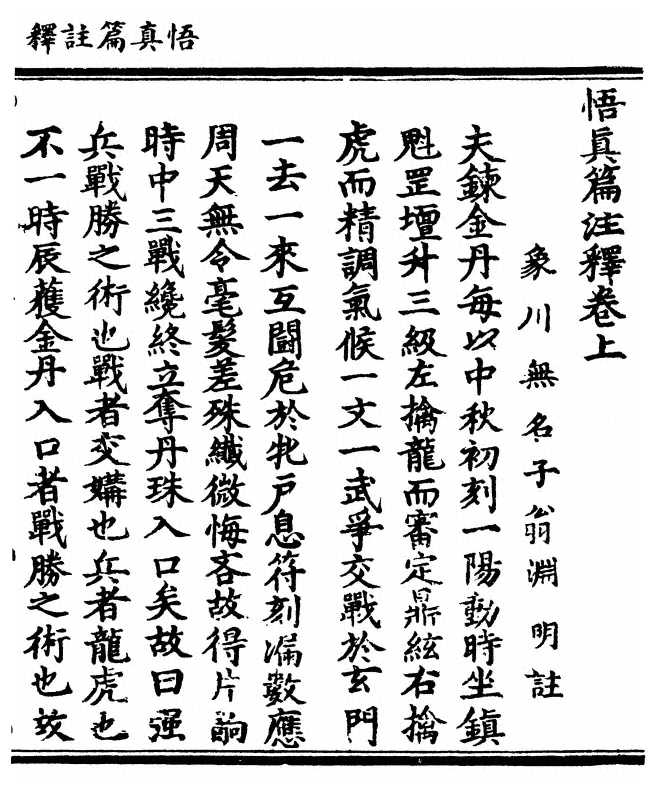 悟真篇註釋
悟眞篇注釋卷上
象川無名子翁淵明註
夫鍊金丹每以中秋初刻一陽動時坐鎮
魁罡壇升三級左擒龍而審定鼎絃右擒
虎而精調氣候一文一武爭交戰於玄門
一去一來互鬪危於牝戶息符刻漏數應
周天無令毫髮差殊纖微悔吝故得片餉
時中三戰纔終立奪丹珠入口矣故曰强
兵戰勝之術也戰者交媾也兵者龍虎也
不一時辰獲金丹入口者戰勝之術也故